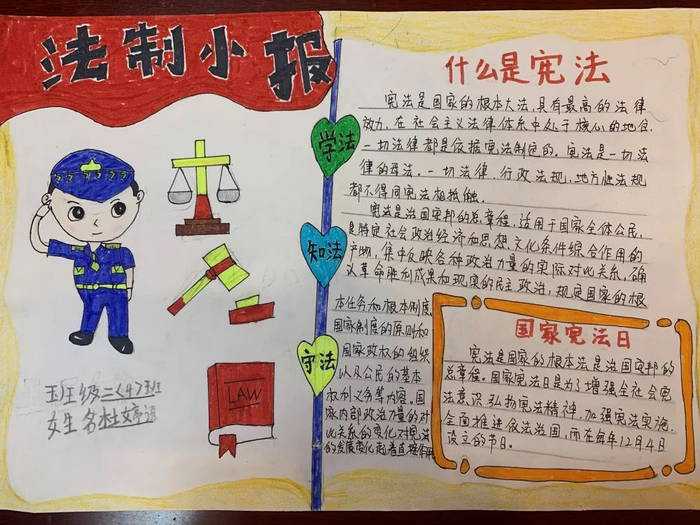 法制小报
学法
知法
守法
LAW
什么是宪法
宪法是国家的根本大法,具有最高的法律
效力,在社会主义法律体系中处于核心的地位,
一切法律都是依据宪法制定的。宪法是一切法
律的母法,一切法律、行政法规、地方性法规
都不得同宪法相抵触。
宪法是治国安邦的总章程,适用于国家全体公民,
是特定社会政治经济和思想文化条件综合作用的
产物,集中反映各种政治力量的实际对比关系,确
认革命胜利成果和现实的民主政治,规定国家的根
本任务和根本制度,
国家制度的原则和
国家政权的组织
以及公民的基本
权利义务等内容。国
家内部政治力量的对
比关系的变化对宪法
的发展变化起着直接作用
国家宪法日
宪法是国家的根本法是治国安邦的
总章程。国家宪法日是为了增强全社会宪
法意识,弘扬宪法精神,加强宪法实施,
全面推进依法治国,而在每年12月4日
设立的节日。
班级二(4)班
姓名